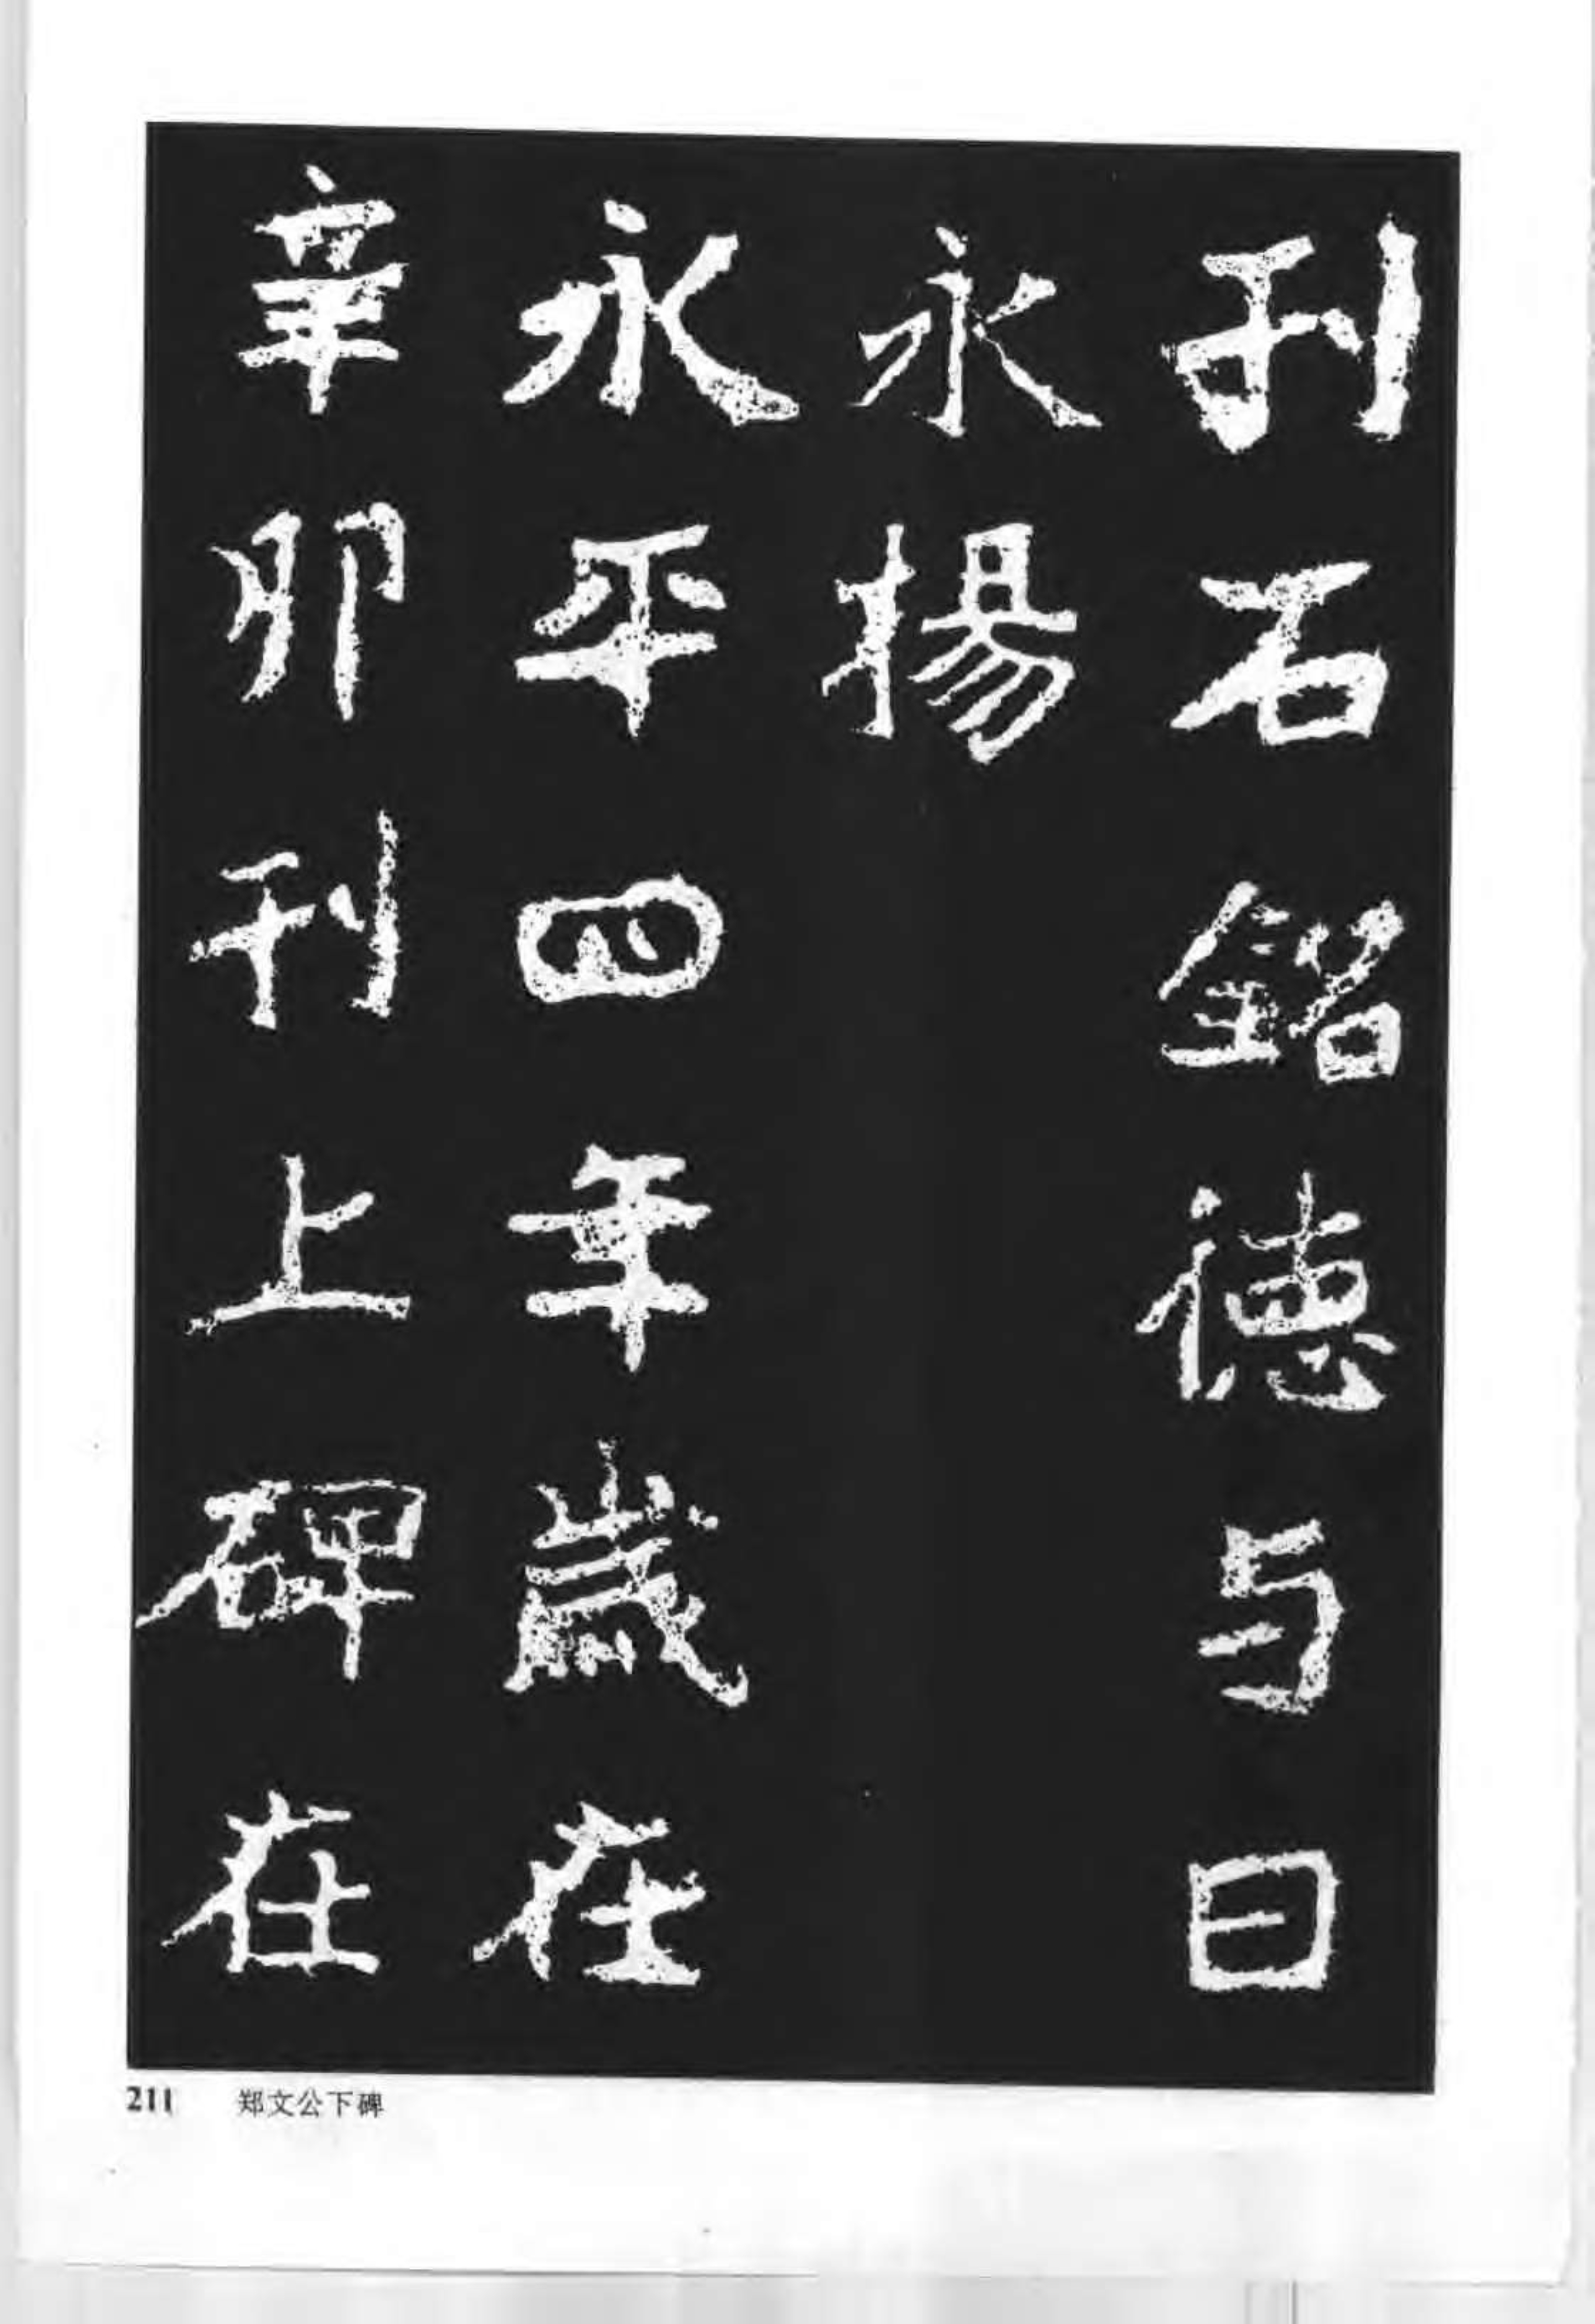 刊石銘德与日
永揚
永平四年歲在
辛卯刊上碑在
211 郑文公下碑